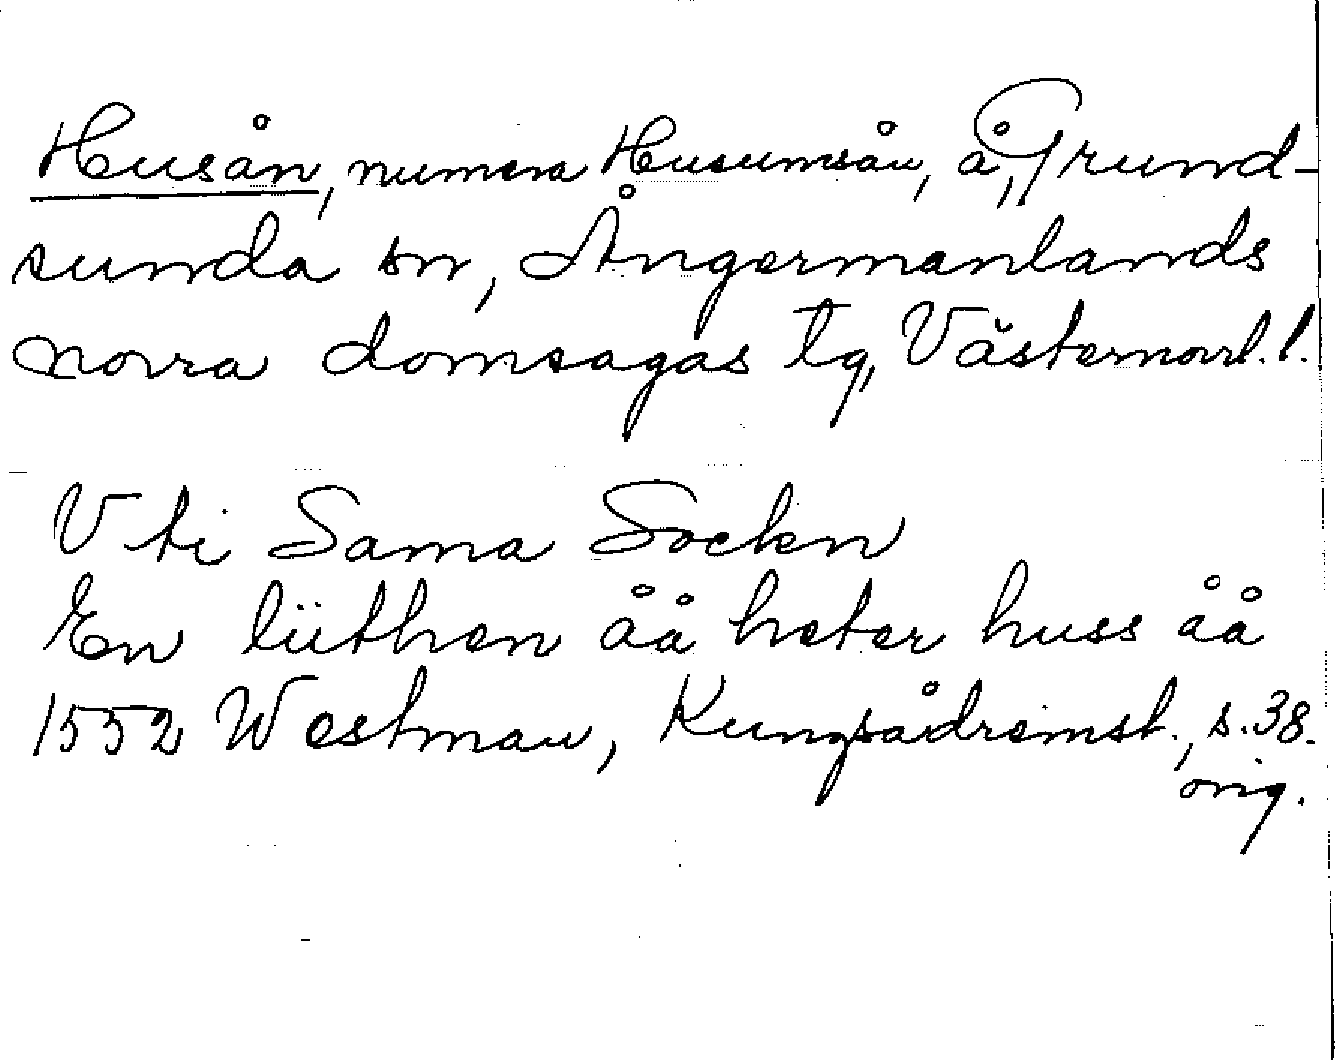 Husån, numera Husumsån, å, Grund-
sunda sn, Ångermanlands
norra domsagas tg, Västernorrl. l.
Vti Sama Sockn
En liithen åå heter huss åå
1552 Westman, Kungsådreinst., s. 38.
orig.